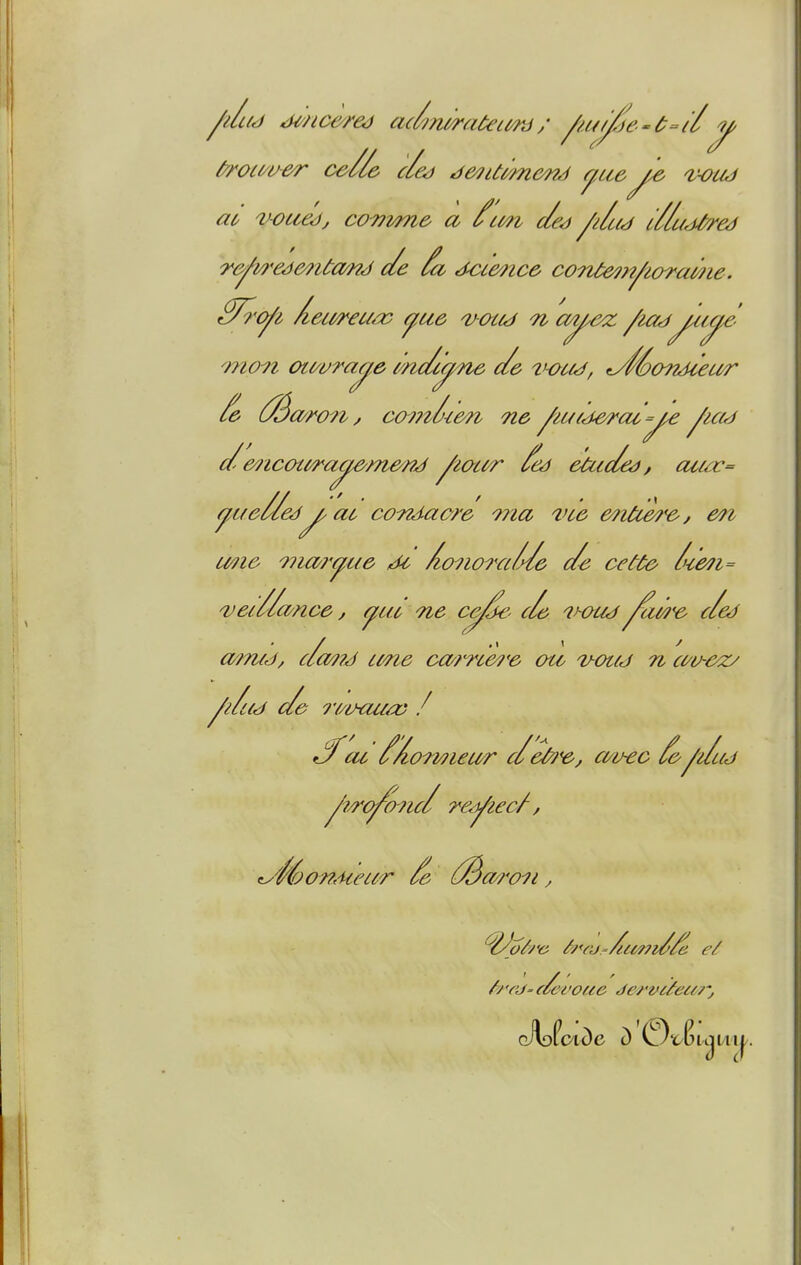 plus sincères admirateurs; puisse-t-il y
trouver celle des sentimens que je vous
ai voués, comme à l'un des plus illustres
représentans de la science contemporaine.
Trop heureux que vous n'ayez pas jugé
mon ouvrage indigne de vous, Monsieur
le Baron, combien ne puiserai-je pas
d'encouragemens pour les études, aux=
quelles j'ai consacré ma vie entière, en
une marque si honorable de cette bien=
veillance, qui ne cesse de vous faire des
amis, dans une carrière où vous n'avez
plus de rivaux!
J'ai l'honneur d'être, avec le plus
profond respect,
Monsieur le Baron,
Votre très-humble et
très-dévoué serviteur,
Alcide d'Orbigny.